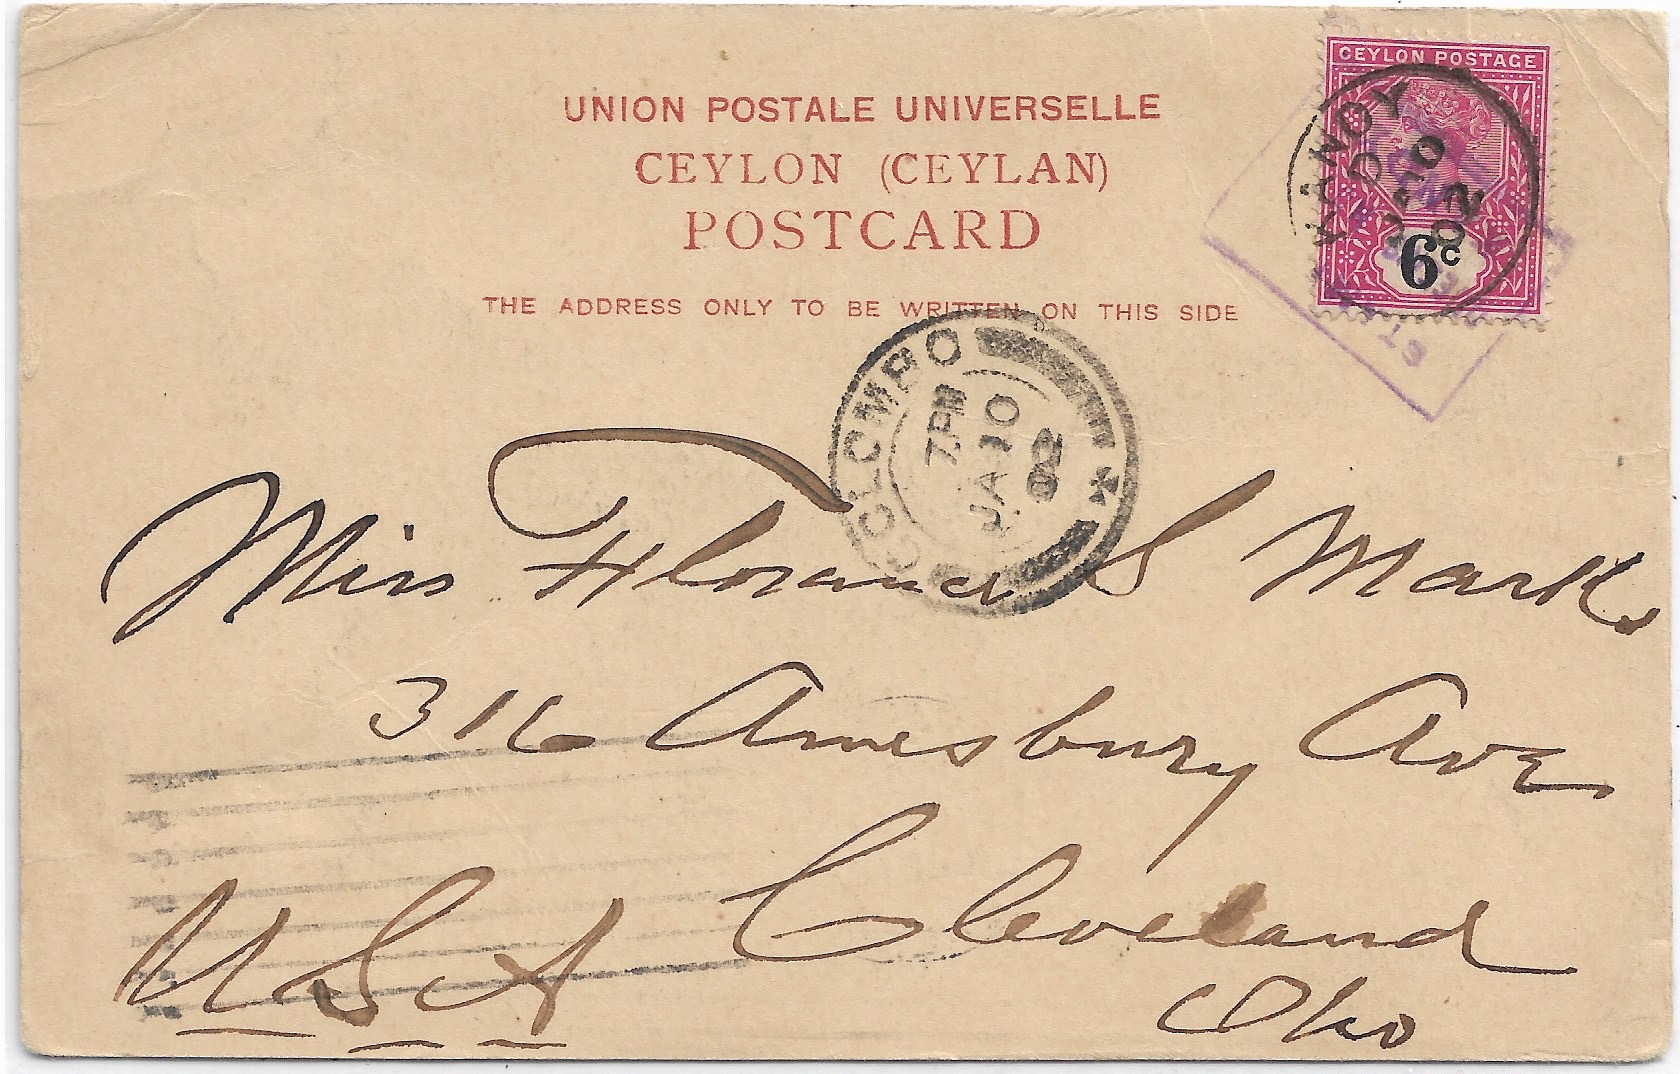 UNION POSTALE UNIVERSELLE
CEYLON (CEYLAN)
POSTCARD
THE ADDRESS ONLY TO BE WRITTEN ON THIS SIDE
CEYLON POSTAGE
6c
KANDY
D
JA 10
02
COLOMBO
7 PM
JA 10
02
Miss Florance S Marks
316 Amesbury Ave
Cleveland
Ohio
U S A